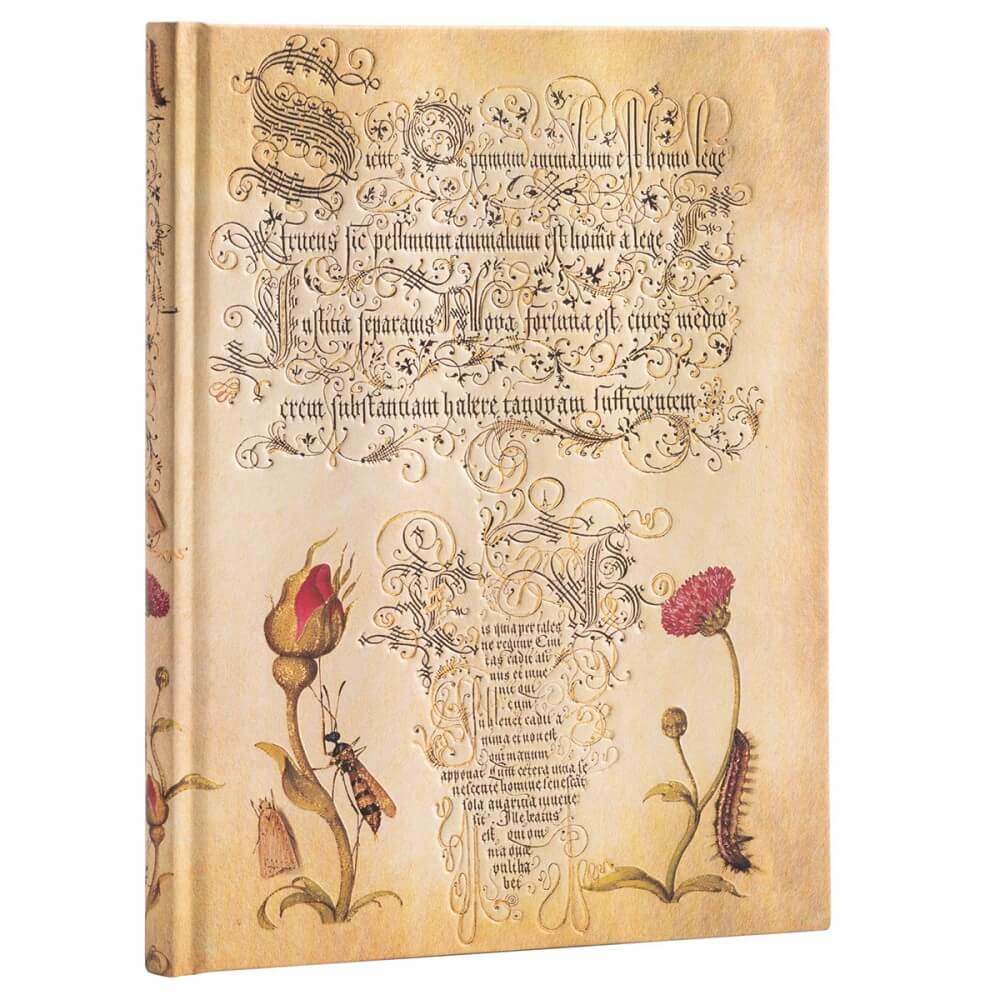 Sicut Optimum animalium est homo lege
fruens sic pessimum animalium est homo a lege Et
Iustitia separatus Nova fortuna est, cives medio
crem substantiam habere tanqvam sufficientem
is quia per tales
ne regnur Civi
tas cadit asi
nus et inue
nit qui
eum
subleuet cadit a
nima et non est
qui manum
apponat Sunt cetera vitia se
nescente homine senescũt
sola auaritia iuuene
sit Ille beatus
est qui om
nia quæ
vult ha
bet